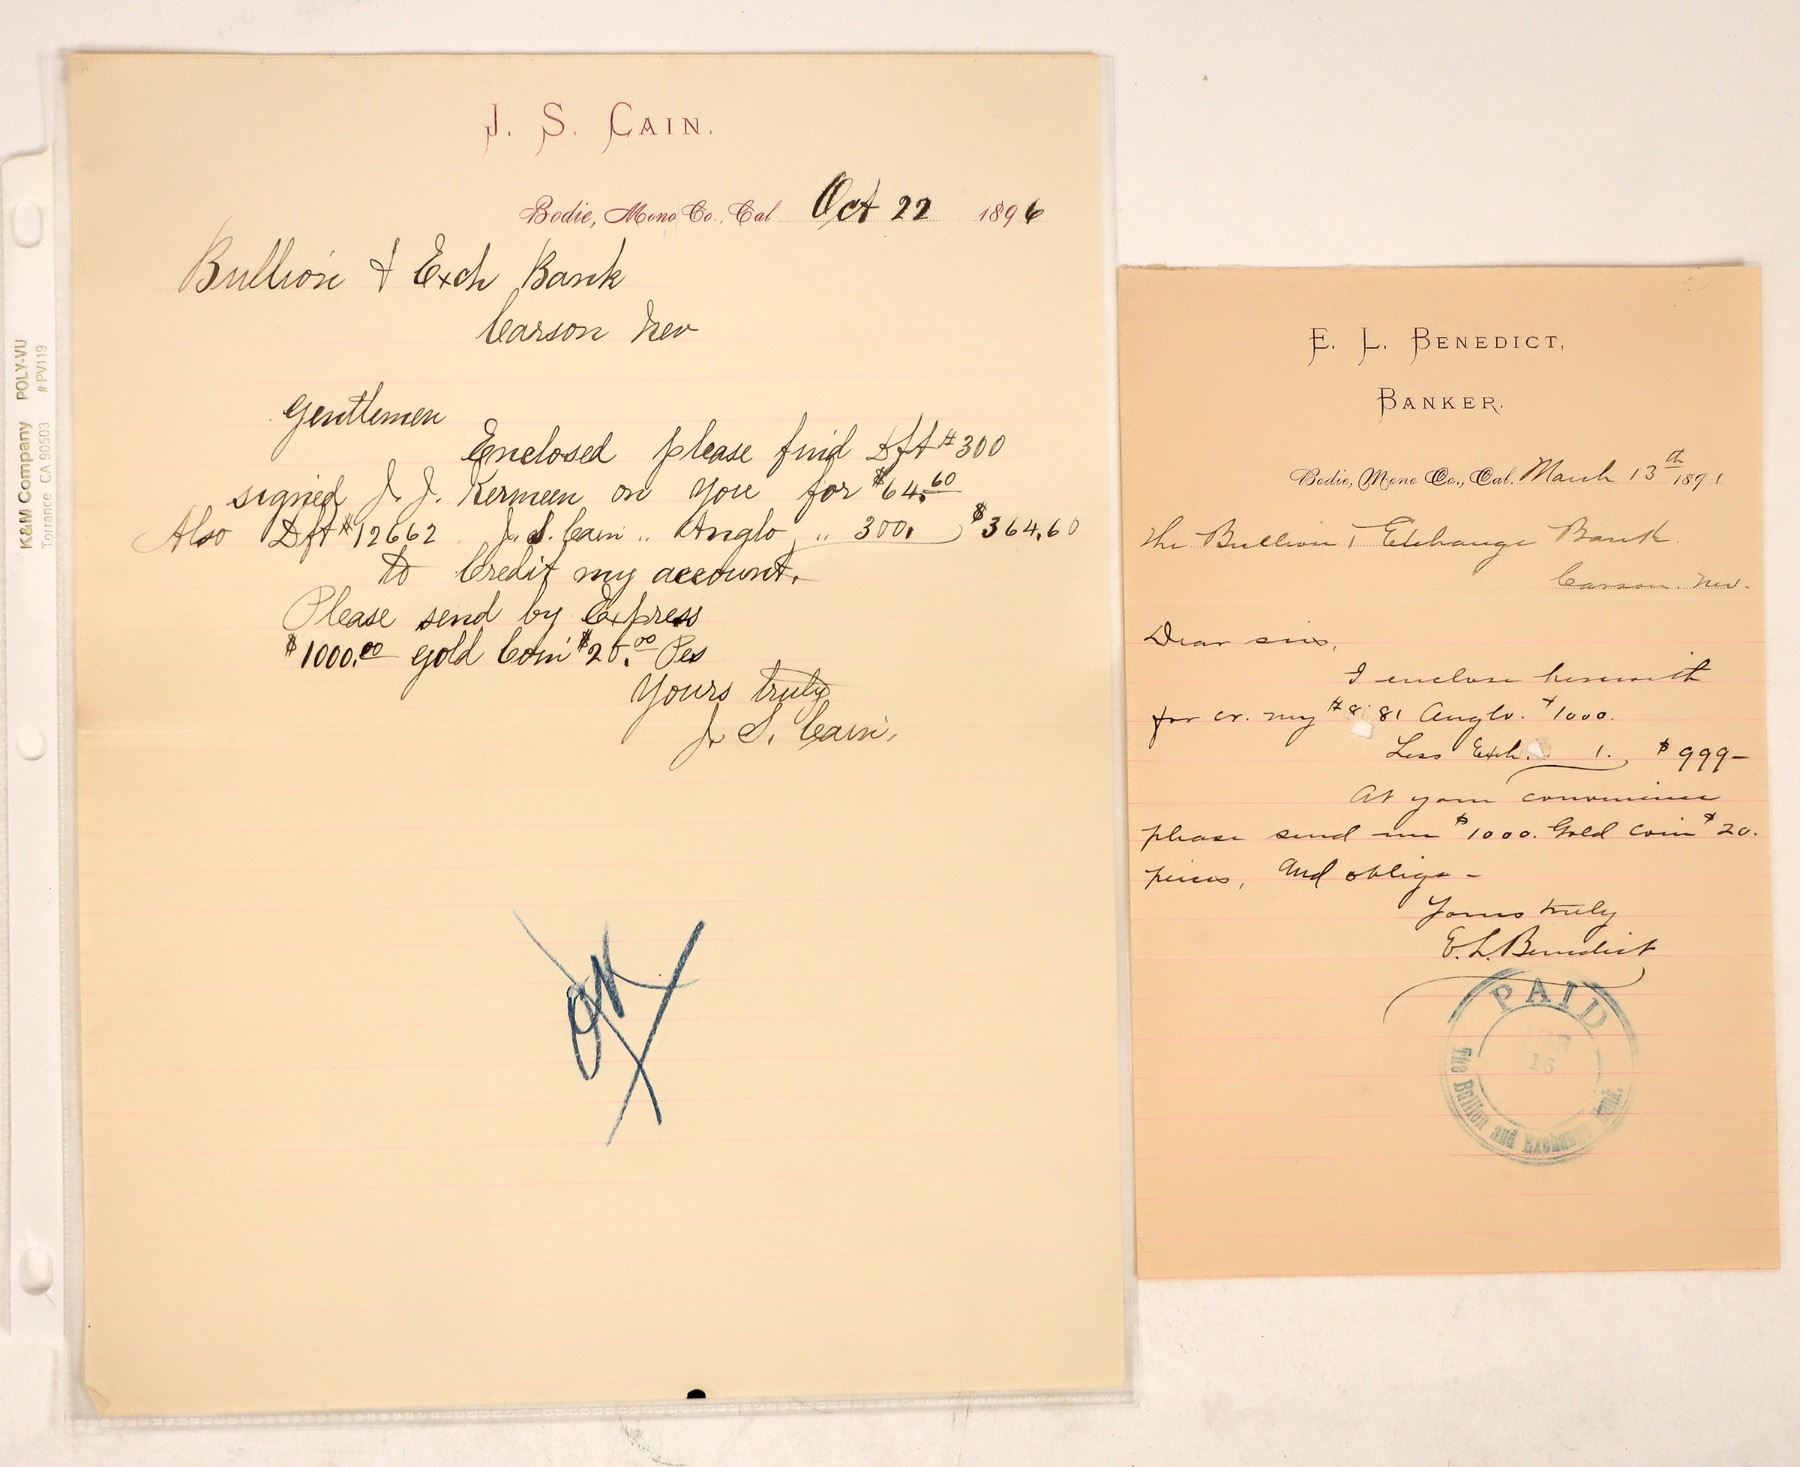 K&M Company POLY-VU
Torrance CA 90503 # PV119
J. S. CAIN.
Bodie, Mono Co., Cal Oct 22 1896
Bullion & Exch Bank
Carson Nev
Gentlemen
Enclosed please find Dft # 300
signed J. J. Kermeen on you for $64.60
Also Dft # 12662 J. S. Cain .. Anglo .. 300. $364.60
to Credit my account.
Please send by Express
$1000.00 gold Coin $20.00 Pes
Yours truly
J. S. Cain.
OK
E. L. BENEDICT,
BANKER.
Bodie, Mono Co., Cal. March 13th 1891
The Bullion & Exchange Bank
Carson. Nev.
Dear sirs,
I enclose herewith
for cr. my # 81 Anglo. $1000.
Less Exch. 1. $999-
At your convenience
please send me $1000. Gold Coin $20.
pieces, And oblige -
Yours truly
E. L. Benedict
PAID
16
The Bullion and Exchange Bank.